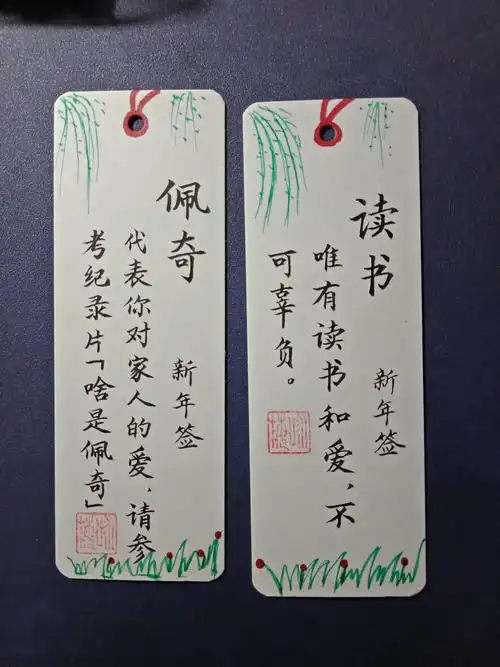 佩奇
新年签
代表你对家人的爱,请参
考纪录片「啥是佩奇」
读书
新年签
唯有读书和爱,不
可辜负。